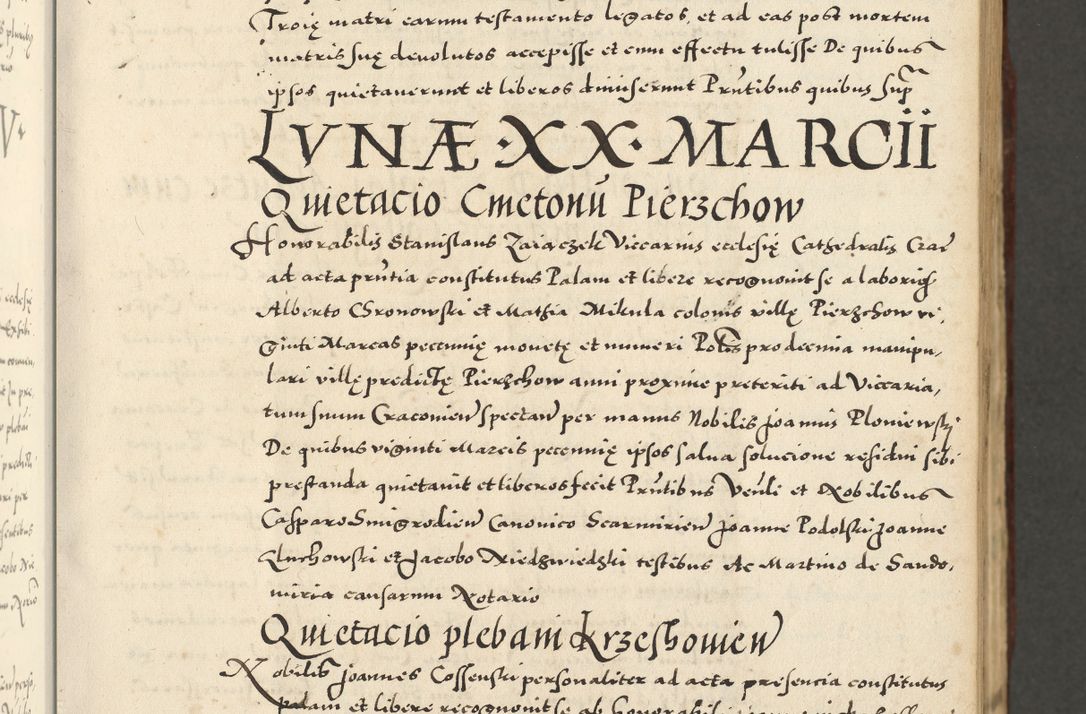 Troię matri earum testamento legatos, et ad eas post mortem
matris suę devolutos accepisse et cum effectu tulisse De quibus
ipsos quietaverunt et liberos dimiserunt Prntibus quibus supra
LVNÆ · XX · MARCII
Quietacio Cmetonū Pierzchow
Honorabilis Stanislaus Zaiączek Viccarius ecclesię Cathedralis Crac
ad acta prntia constitutus Palam et libere recognovit se a laborios
Alberto Chronowski et Mathia Mikula colonis villę Pierzchow vi,
ginti Marcas pecunię monetę et numeri Polos pro decima manipu,
lari villę predictę Pierzchow anni proxime preteriti ad Viccaria,
tum suum Cracovien spectan per manus Nobilis Joannis Ploniewski
De quibus viginti Marcis pecunię ipsos salva solucione residui sibi
prestanda quietavit et liberos fecit Prntibus Venli et Nobilibus
Casparo Smigrodien Canonico Scarmirien Joanne Podolski Joanne
Chuchowski et Jacobo Niedzwiedzki testibus Ac Martino de Sando,
miria causarum Notario
Quietacio plebani Krzeshovien
Nobilis Joannes Cossenski personaliter ad acta presencia constitutus
palam et libere recognovit se ab honorabili